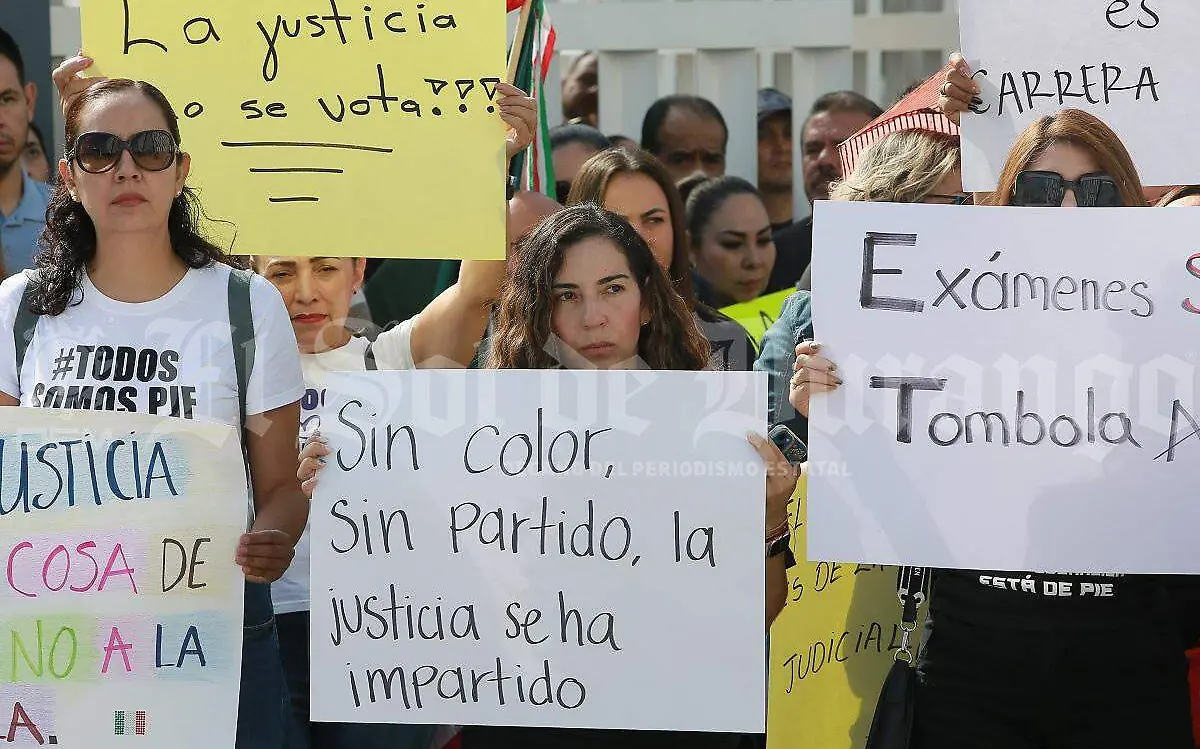 La justicia
no se vota!!!
es
CARRERA
#TODOS
SOMOS PJF
USTICIA
COSA DE
NO A LA
A.
Sin color,
Sin Partido, la
justicia se ha
impartido
Exámenes S
Tombola A
ESTÁ DE PIE
ES DE LA
JUDICIAL
El Sol de Durango
DEL PERIODISMO ESTATAL